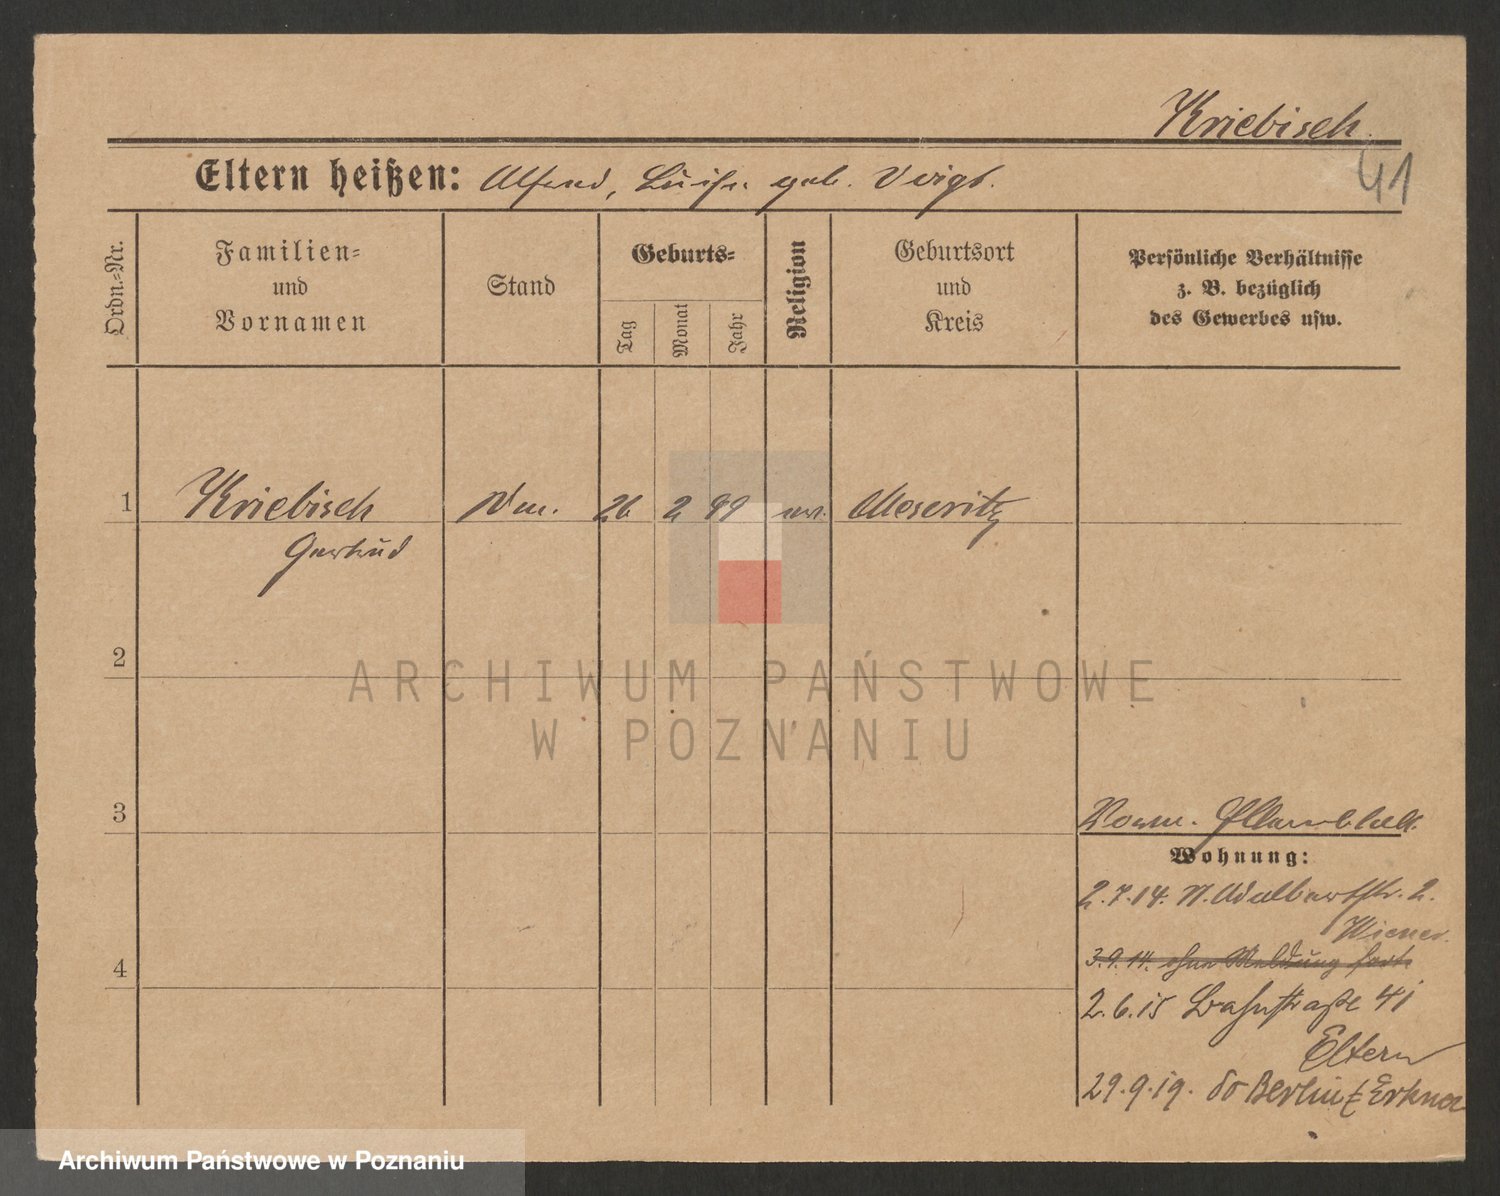 Kriebisch.
41
Eltern heißen: Alfred, Luise geb. Voigt.
Ordn.=Nr.
Familien=
und
Vornamen
Stand
Geburts=
Tag
Monat
Jahr
Religion
Geburtsort
und
Kreis
Persönliche Verhältnisse
z. B. bezüglich
des Gewerbes usw.
1 Kriebisch 26 2 99 Meseritz
Gertrud
2
ARCHIWUM PAŃSTWOWE
W POZNANIU
3
Wohnung:
2.7.14. N. Adalbertstr. 2.
Wiener.
3.9.14. ohne Meldung fort.
4
2.6.15 Bahnstraße 41
Eltern
29.9.19. Berlin Erkner
Archiwum Państwowe w Poznaniu